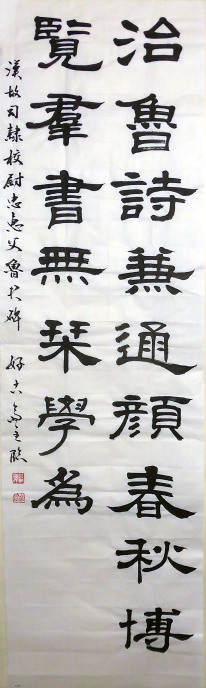 治魯詩兼通顔春秋博
覽羣書無栞學為
漢故司隸校尉忠惠父魯君碑 好古主臨